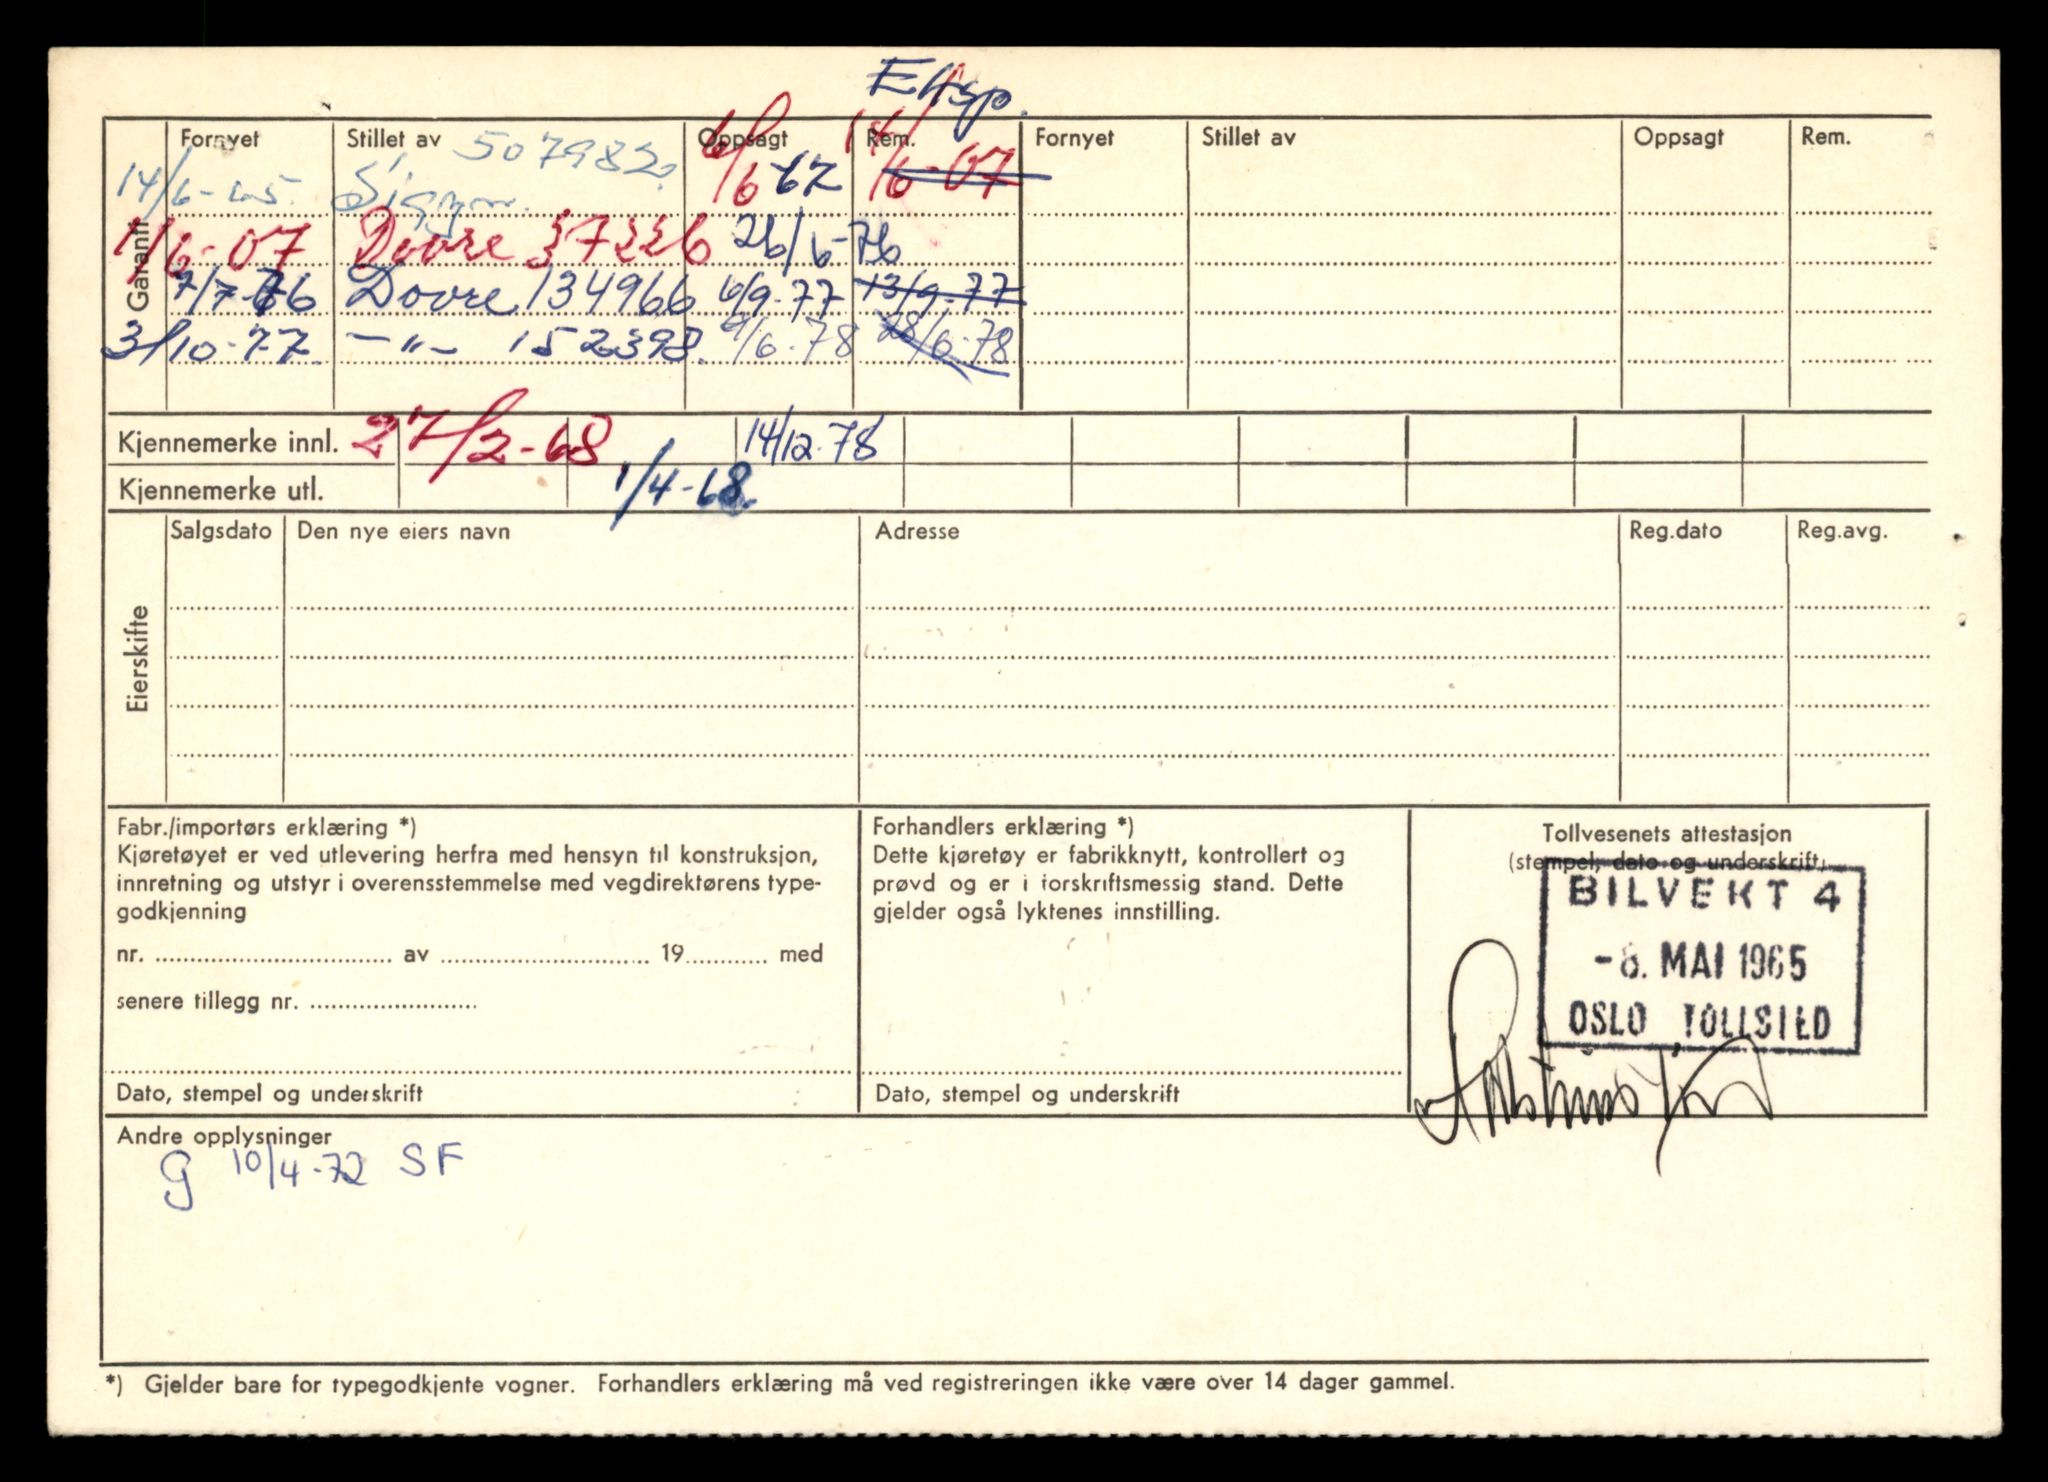 Eftsp.
Garanti
Fornyet Stillet av Oppsagt Rem. Fornyet Stillet av Oppsagt Rem.
14/6-65. 507982 6/6 67 14/6-07
1/6-07 Dovre 37226 26/6-76
7/7-76 Dovre 134966 6/9-77 13/9-77
3/10-77. -"- 152398. 9/6-78 28/6-78
Kjennemerke innl. 27/2-68 14/12-78
Kjennemerke utl. 1/4-68.
Eierskifte
Salgsdato Den nye eiers navn Adresse Reg.dato Reg.avg.
Fabr./importørs erklæring *)
Kjøretøyet er ved utlevering herfra med hensyn til konstruksjon,
innretning og utstyr i overensstemmelse med vegdirektørens type-
godkjenning
nr. ........ av ........ 19........ med
senere tillegg nr. ........
Dato, stempel og underskrift
Forhandlers erklæring *)
Dette kjøretøy er fabrikknytt, kontrollert og
prøvd og er i forskriftsmessig stand. Dette
gjelder også lyktenes innstilling.
Dato, stempel og underskrift
Tollvesenets attestasjon
(stempel, dato og underskrift)
BILVEKT 4
-8. MAI 1965
OSLO TOLLSTED
Andre opplysninger
g 10/4-72 SF
*) Gjelder bare for typegodkjente vogner. Forhandlers erklæring må ved registreringen ikke være over 14 dager gammel.